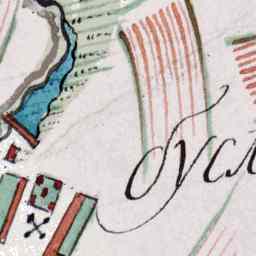 бусл